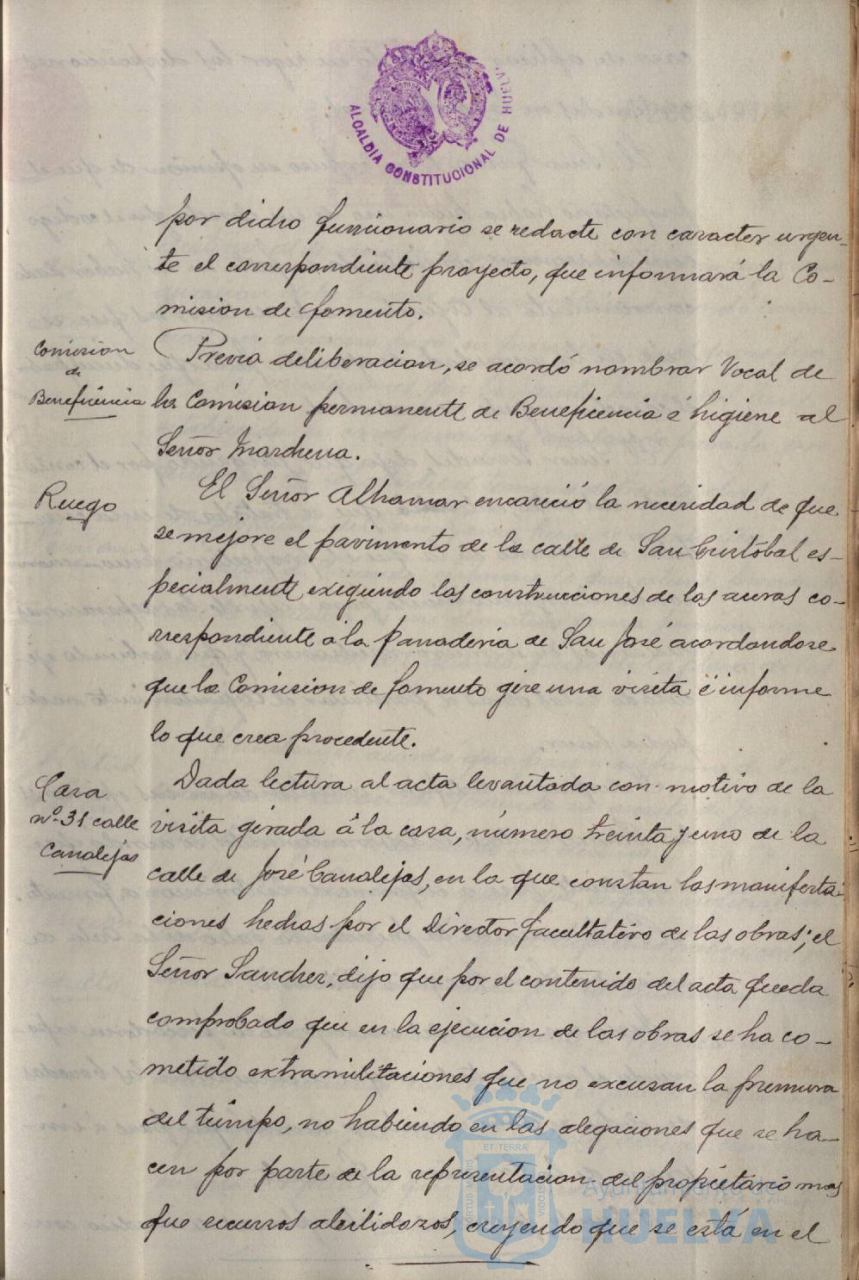 ALCALDÍA CONSTITUCIONAL DE HUELVA
por dicho funcionario se redacte con caracter urgen-
te el correspondiente proyecto, que informará la Co-
mision de fomento.
Comision
de
Beneficencia
Previa deliberacion, se acordó nombrar Vocal de
la Comision permanente de Beneficencia é higiene al
Señor Marchena.
Ruego
El Señor Alhamar encareció la necesidad de que
se mejore el pavimento de la calle de San Cristobal es-
pecialmente exigiendo las construcciones de las aceras co-
rrespondiente á la panaderia de San José acordandose
que la Comision de fomento gire una visita é informe
lo que crea procedente.
Casa
nº 31 calle
Canalejas
Dada lectura al acta levantada con motivo de la
visita girada á la casa, número treinta y uno de la
calle de José Canalejas, en la que constan las manifesta-
ciones hechas por el Director facultativo de las obras; el
Señor Sanchez, dijo que por el contenido del acta queda
comprobado que en la ejecucion de las obras se ha co-
metido extramilitaciones que no excusan la premura
del tiempo, no habiendo en las alegaciones que se ha-
cen por parte de la representacion del propietario mas
que recursos creyendo que se está en el
Ayuntamiento de
HUELVA